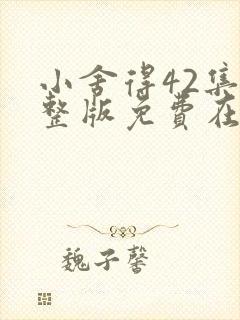 小舍得42集
整版免费在
魏子馨